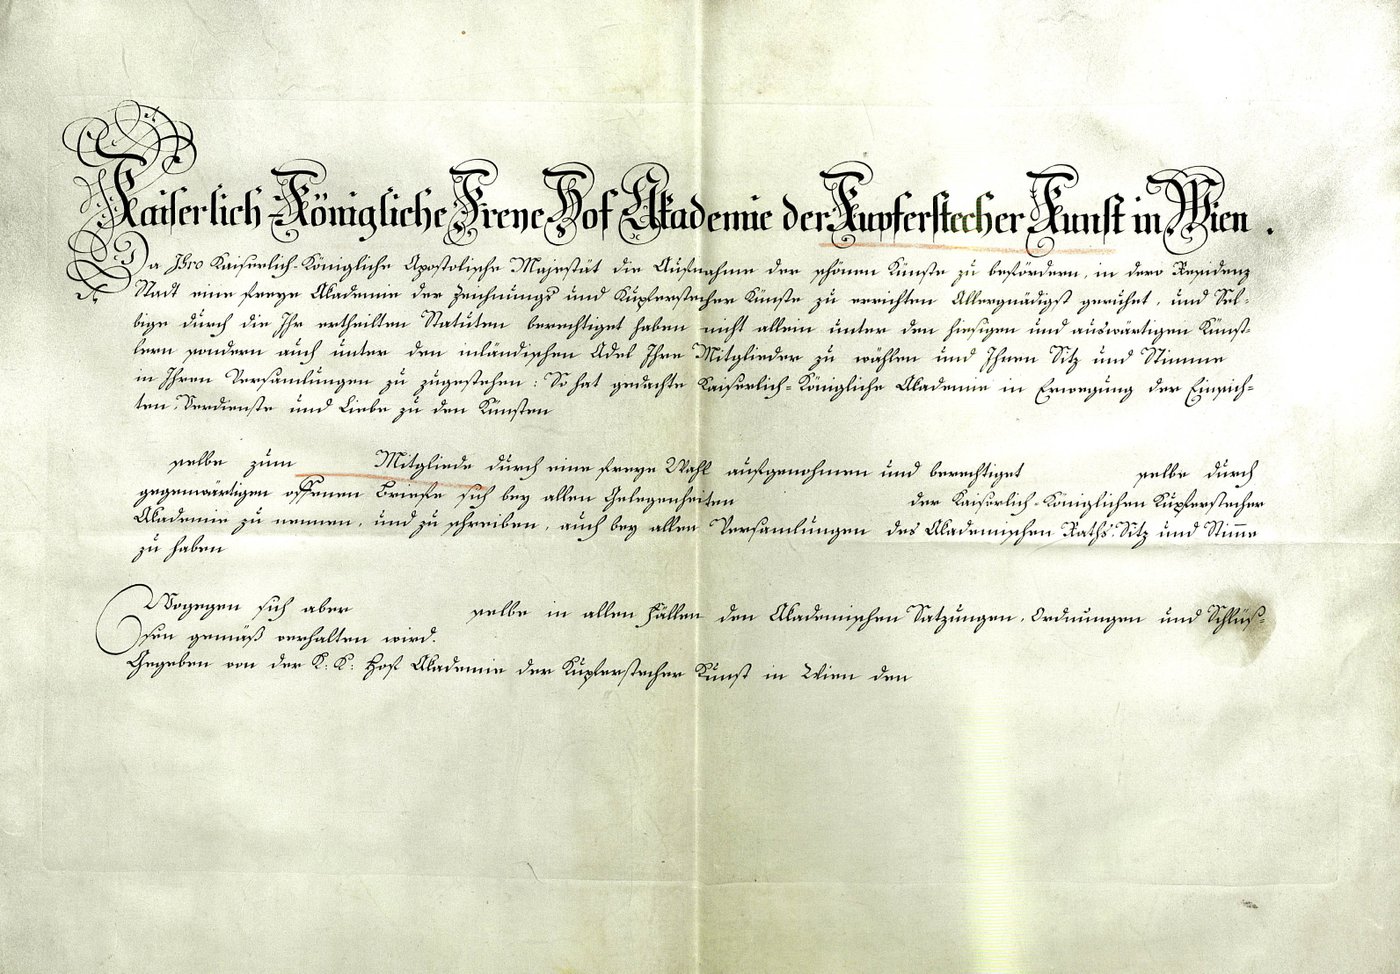 Kaiserlich-Königliche Freye Hof Akademie der Kupferstecher Kunst in Wien.
Da Ihro Kaiserlich-Königliche Apostolische Majestät die Aufnahme der schönen Künste zu befördern, in dero Residenz
Stadt eine freye Akademie der Zeichnungs und Kupferstecher Künste zu errichten Allergnädigst geruhet, und Sel-
bige durch die Ihr ertheilten Statuten berechtiget haben nicht allein unter den hiesigen und auswärtigen Künst-
lern sondern auch unter den inländischen Adel Ihre Mitglieder zu wählen und Ihnen Sitz und Stimme
in Ihren Versamlungen zu zugestehen: So hat gedachte Kaiserlich-Königliche Akademie in Erwegung der Einsich-
ten, Verdienste und Liebe zu den Künsten
selbe zum Mitgliede durch eine freye Wahl aufgenohmen und berechtiget selbe durch
gegenwärtigen offenen Briefe sich bey allen Gelegenheiten der Kaiserlich-Königlichen Kupferstecher
Akademie zu nennen, und zu schreiben, auch bey allen Versamlungen des Akademischen Raths Sitz und Stim̅e
zu haben
Wogegen sich aber selbe in allen Fällen den Akademischen Satzungen, Ordnungen und Schlüs-
sen gemäß verhalten wird.
Gegeben von der K: K: Hof Akademie der Kupferstecher Kunst in Wien den